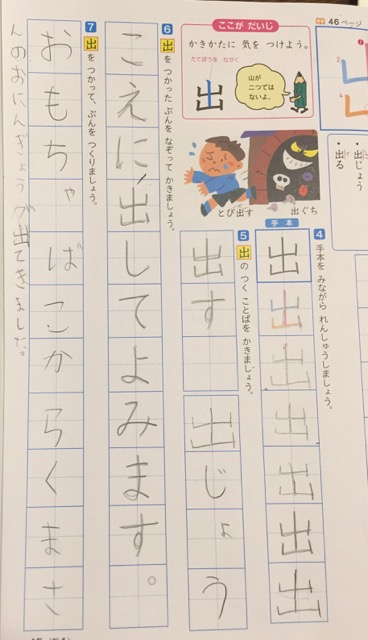 46ページ
・出じょう
・出る
ここが だいじ
かきかたに 気を つけよう。
たてぼうを ながく
出
山が
二つでは
ないよ。
とび出す
出ぐち
4 手本を みながら れんしゅうしましょう。
手本
出
出
出
出
出
出
出
5 出の つく ことばを かきましょう。
出す
出じょう
6 出を つかった ぶんを なぞって かきましょう。
こえに出してよみます。
7 出を つかって、ぶんを つくりましょう。
おもちゃばこからくまさ
んのおにんぎょうが出てきました。